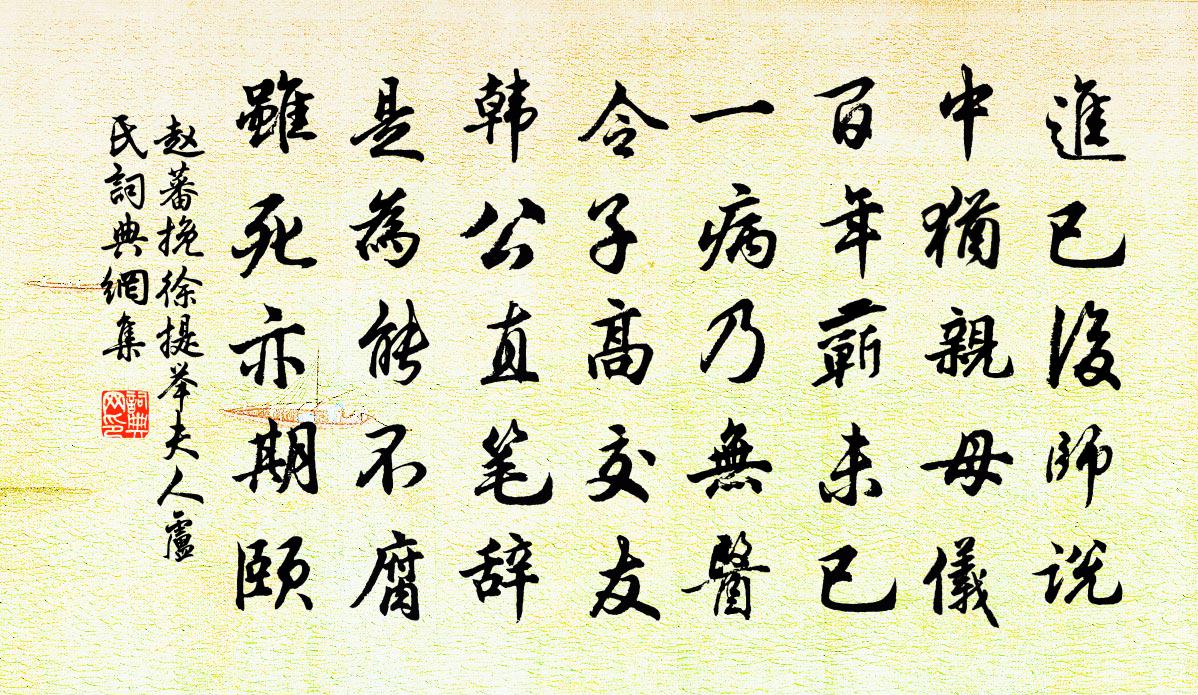 進已後師説
中猶親母儀
百年蘄未已
一病乃無醫
令子高交友
韩公直笔辞
是為能不腐
雖死亦期颐
赵蕃挽徐提举夫人盧
氏詞典網集
詞典网印